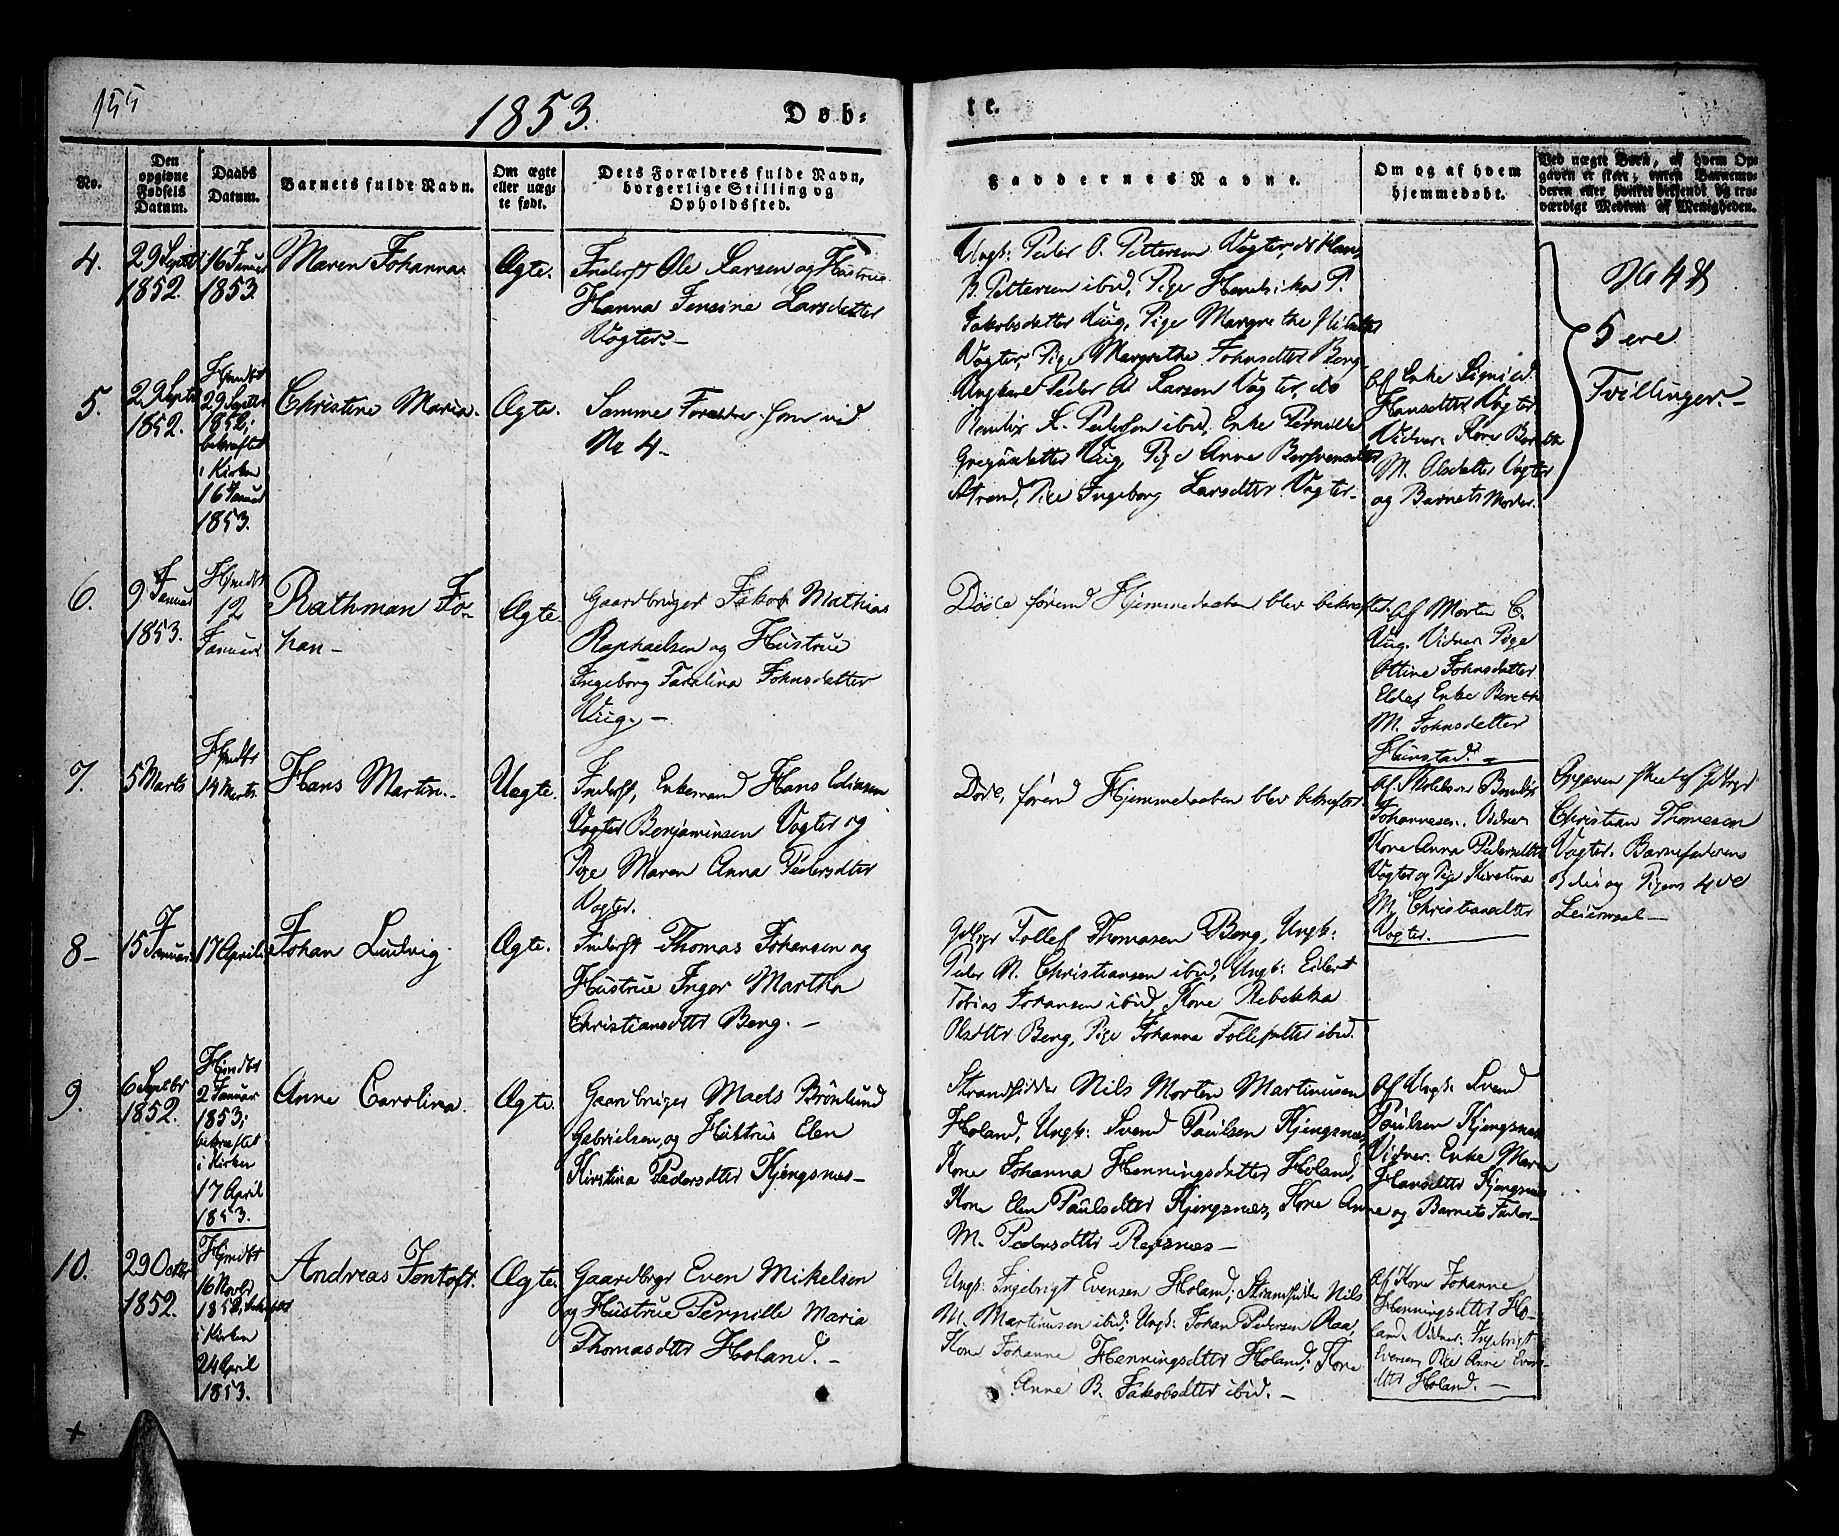 155
1853.
Døb-
te.
No.
Den
opgivne
Fødsels
Datum.
Daabs
Datum.
Barnets fulde Navn.
Om ægte
eller uæg-
te født.
Dets Forældres fulde Navn,
borgerlige Stilling og
Opholdssted.
Faddernes Navne.
Om og af hvem
hjemmedøbt.
Ved uægte Børn, af hvem Op-
gaven er skeet, enten Barnemo-
deren eller hvilket bekjendt og tro-
værdigt Medlem af Menigheden.
4.
29 Septbr
1852.
16 Januar
1853.
Maren Johanna
Ægte.
Inderst Ole Larsen og Hustrue
Hanna Jensine Larsdatter
Vogter.-
Ungk: Peder O. Pettersen Vogter, do Hans
B. Pettersen ibid, Pige Hendrika P.
Jakobsdatter Vug, Pige Margrethe
Vogter, Pige Margrethe Johnsdatter Berg
No 4 &
5 ere
Tvillinger.-
5.
29 Septbr
1852.
Hjmdbt
29 Septbr
1852;
bekræftet
i Kirken
16 Januar
1853.
Christine Maria.
Ægte.
Samme Forældre som ved
No 4-
Ungkarl Peder A. Larsen Vogter, do
K. Pedersen ibid, Enke Pernille
Vug, Pige Anne
Strand, Pige Ingeborg Larsdtter Vogter-
Af Enke
Hansdtter Vogter
Vidner: Kone Berethe
M. Olsdatter Vogter
og Barnets Moder.
6.
9 Januar
1853.
Hjmdbt
12
Januar
Rathman Jo-
han-
Ægte
Gaardbruger Jakob Mathias
Raphaelsen og Hustrue
Ingeborg Johnsdatter
Vug.-
Døde førend Hjemmedaaben blev bekræftet.
Af Morten C.
Vug. Vidner: Pige
Ottine Johnsdatter
Enke Berethe
M. Johnsdatter
7.
5 Marts
Hjmdbt
14 Marts.
Hans Martin.-
Uægte.
Inderst, Enkemand Hans
Vogter Benjaminsen Vogter og
Pige Maren Anna Pedersdtter
Vogter.
Døde, førend Hjemmedaaben blev bekræftet.
Johannesen. Vidner
Kone Anna Pedersdtter
Vogter og Pige Kirstina
M. Christiansdtter
Vogter.
Opgaven skeet af
Christian Thomesen
Vogter. Barnefaderens
og Pigens 4de
Leiermaal-
8-
15 Januar
17 April.
Johan Ludvig.
Ægte.
Inderst Thomas Johansen og
Hustrue Inger Martha
Christiansdtter Berg.-
Gdbrgr Tollef Thomasen Berg, Ungk:
Peder M. Christiansen ibid, Ungk: Eilert
Tobias Johansen ibid, Kone Rebekka
Olsdtter Berg, Pige Johanna Tollefsdtter ibid.
9.
6 Septbr
1852.
Hjmdbt
2 Januar
1853;
bekræftet
i Kirken
17 April
1853.
Anne Carolina.
Ægte.
Gaardbruger Mads Brönlund
Gabrielsen, og Hustrue Elen
Kirstina Pedersdtter Kjengsnæs-
Strandsidder Nils Morten Martinusen
Holand, Ungk: Svend Paulsen Kjengsnæs,
Kone Johanna Henningsdatter Holand,
Kone Elen Paulsdtter Kjengsnæs, Kone Anne
M. Pedersdtter Refsnæs-
Af Ungk: Svend
Paulsen Kjengsnæs
Vidner: Enke Maren
Hansdtter Kjengsnæs
og Barnets Fader-
10.
29 Octbr
1852.
Hjmdbt
16 Novbr
1852, bekræftet
i Kirken
24 April
1853.
Andreas Jentoft.
Ægte.
Gaardbrgr Even Mikelsen
og Hustrue Pernille Maria
Thomasdtter Holand.-
Ungk: Ingebrigt Evensen Holand, Strandsidder Nils
M. Martinusen ibid, Ungk: Johan Pedersen Raa,
Kone Johanne Henningsdtter Holand, Kone
Anne B. Jakobsdtter ibid.-
Af Kone Johanne
Henningsdtter Ho-
land. Vidner: Ingebrigt
Evensen, Pige Anne Evens-
dtter Holand.-
+